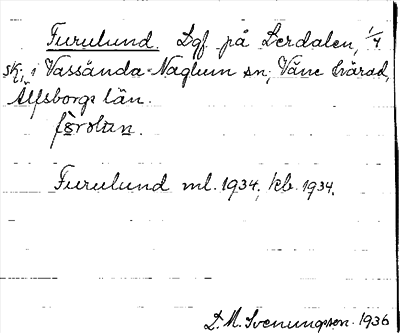 Furulund. Lgf på Lerdalen, 1/4
sk, i Vassända-Naglum sn, Väne härad,
Älfsborgs län.
furolun.
Furulund ml. 1934, kb. 1934.
D. M. Svenungsson. 1936